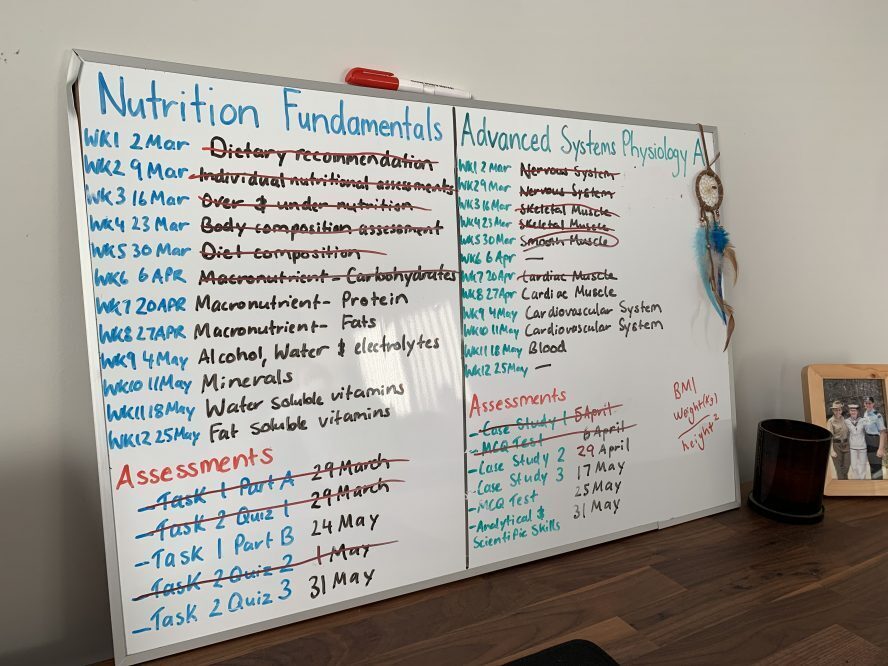 Nutrition Fundamentals
WK1 2 Mar Dietary recommendation
WK2 9 Mar Individual nutritional assessments
WK3 16 Mar Over & under nutrition
WK4 23 Mar Body composition assessment
WK5 30 Mar Diet composition
WK6 6 APR Macronutrient - Carbohydrates
WK7 20 APR Macronutrient - Protein
WK8 27 APR Macronutrient - Fats
WK9 4 May Alcohol, Water & electrolytes
WK10 11 May Minerals
WK11 18 May Water soluble vitamins
WK12 25 May Fat soluble vitamins
Assessments
- Task 1 Part A 29 March
- Task 2 Quiz 1 29 March
- Task 1 Part B 24 May
- Task 2 Quiz 2 1 May
- Task 2 Quiz 3 31 May
Advanced Systems Physiology A
WK1 2 Mar Nervous System
WK2 9 Mar Nervous System
WK3 16 Mar Skeletal Muscle
WK4 23 Mar Skeletal Muscle
WK5 30 Mar Smooth Muscle
WK6 6 Apr —
WK7 20 Apr Cardiac Muscle
WK8 27 Apr Cardiac Muscle
WK9 4 May Cardiovascular System
WK10 11 May Cardiovascular System
WK11 18 May Blood
WK12 25 May —
Assessments
- Case Study 1 5 April
- MCQ Test 6 April
- Case Study 2 29 April
- Case Study 3 17 May
- MCQ Test 25 May
- Analytical & 31 May
Scientific Skills
BMI
Weight(kg)
height²